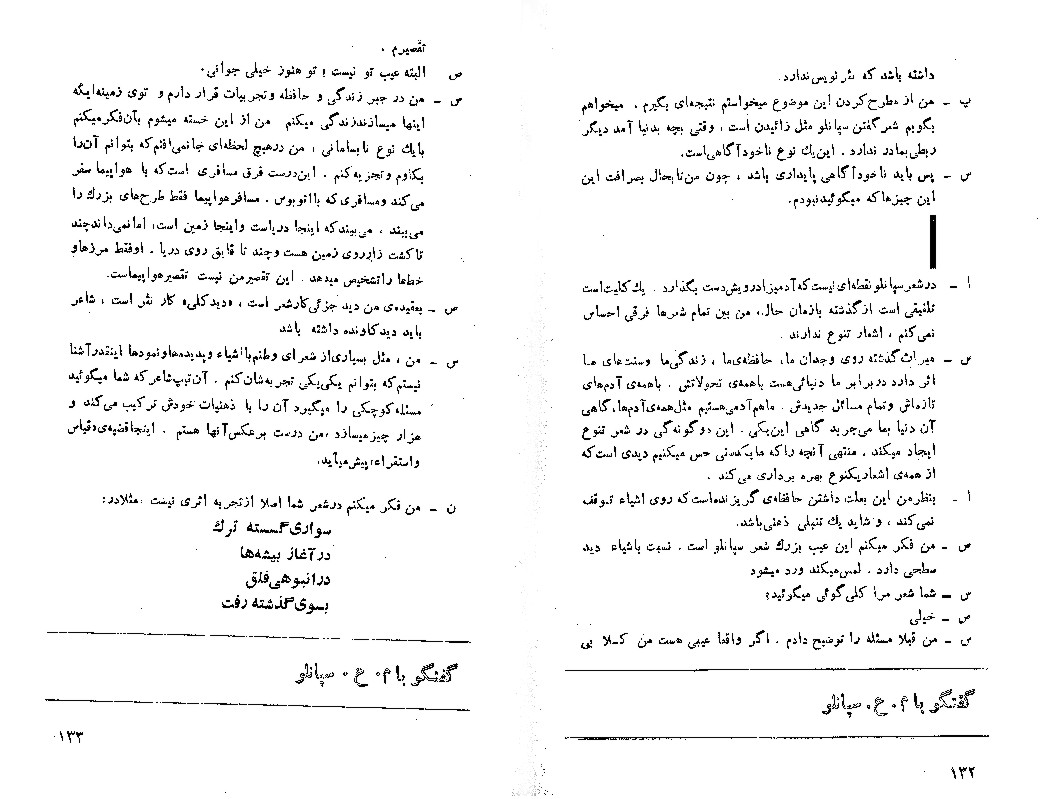 داشته باشد که نثر نویس ندارد.
پ ـ من از مطرح کردن این موضوع میخواستم نتیجه‌ای بگیرم . میخواهم
بگویم شعر گفتن سپانلو مثل زائیدن است ، وقتی بچه بدنیا آمد دیگر
ربطی بمادر ندارد . این یك نوع ناخودآگاهی است.
س ـ پس باید ناخودآگاهی پایداری باشد ، چون من تا بحال بصرافت این
این چیزها که میگوئید نبودم.
ا ـ در شعر سپانلو نقطه‌ای نیست که آدم بیزاد رویش دست بگذارد . یك کلیت است
تلفیقی است از گذشته با زمان حال، من بین تمام شعرها فرقی احساس
نمی‌کنم ، اشعار تنوع ندارند
س ـ میراث گذشته روی وجدان ما، حافظه‌ی ما ، زندگی ما و سنت‌های ما
اثر دارد در برابر ما دنیائی هست با همه‌ی تحولاتش . با همه‌ی آدم‌های
تازه‌اش و تمام مسائل جدیدش . ما هم آدمی هستیم مثل همه‌ی آدم‌ها، گاهی
آن دنیا بما می‌چربد گاهی این یکی . این دو گونه‌گی در شعر تنوع
ایجاد میکند . منتهی آنچه را که ما یکدستی حس میکنیم دیدی است که
از همه‌ی اشعار یکنوع بهره برداری می‌کند .
ا ـ بنظر من این بعلت داشتن حافظه‌ی گریزنده است که روی اشیاء توقف
نمی‌کند ، و شاید یك تنبلی ذهنی باشد.
ص ـ من فکر میکنم این عیب بزرك شعر سپانلو است . نسبت باشیاء دید
سطحی دارد . لمس میکند و رد میشود
س ـ شما شعر مرا کلی گوئی میگوئید؟
ص ـ خیلی
س ـ من قبلا مسئله را توضیح دادم . اگر واقعا عیبی هست من کـلا بی
گفتگو با م . ع . سپانلو
۱۳۲
تقصیرم .
ص ـ البته عیب تو نیست ؛ تو هنوز خیلی جوانی.
س ـ من در جبر زندگی و حافظه و تجربیات قرار دارم و توی زمینه ایکه
اینها میسازند زندگی میکنم من از این خسته میشوم بآن فکر میکنم
با یك نوع نابسامانی ، من در هیچ لحظه‌ای جا نمی‌افتم که بتوانم آن را
بکاوم و تجزیه کنم . این درست فرق مسافری است که با هواپیما سفر
می‌کند و مسافری که با اتوبوس . مسافر هواپیما فقط طرح‌های بزرك را
می‌بیند ، می‌بیند که اینجا دریاست و اینجا زمین است، اما نمی‌داند چند
تا کشت زار روی زمین هست و چند تا قایق روی دریا . او فقط مرزها و
خط‌ها را تشخیص میدهد . این تقصیر من نیست تقصیر هواپیماست.
ص ـ بعقیده‌ی من دید جزئی کار شعر است ، «دید کلی» کار نثر است ، شاعر
باید دید کاونده داشته باشد
س ـ من ، مثل بسیاری از شعرای وطنم با اشیاء و پدیده‌ها و نمودها اینقدر آشنا
نیستم که بتوانم یکی یکی تجربه‌شان کنم . آن تیپ شاعر که شما میگوئید
مسئله کوچکی را میگیرد آن را با ذهنیات خودش ترکیب می‌کند و
هزار چیز میسازد ،من درست برعکس آنها هستم . اینجا قضیه‌ی «قیاس
و استقراء» پیش میآید.
ن ـ من فکر میکنم در شعر شما اصلا از تجربه اثری نیست ،مثلا در:
سواری گسسته ترك
در آغاز بیشه‌ها
در انبوهی فلق
بسوی گذشته رفت
گفتگو با م. ع . سپانلو
۱۳۳